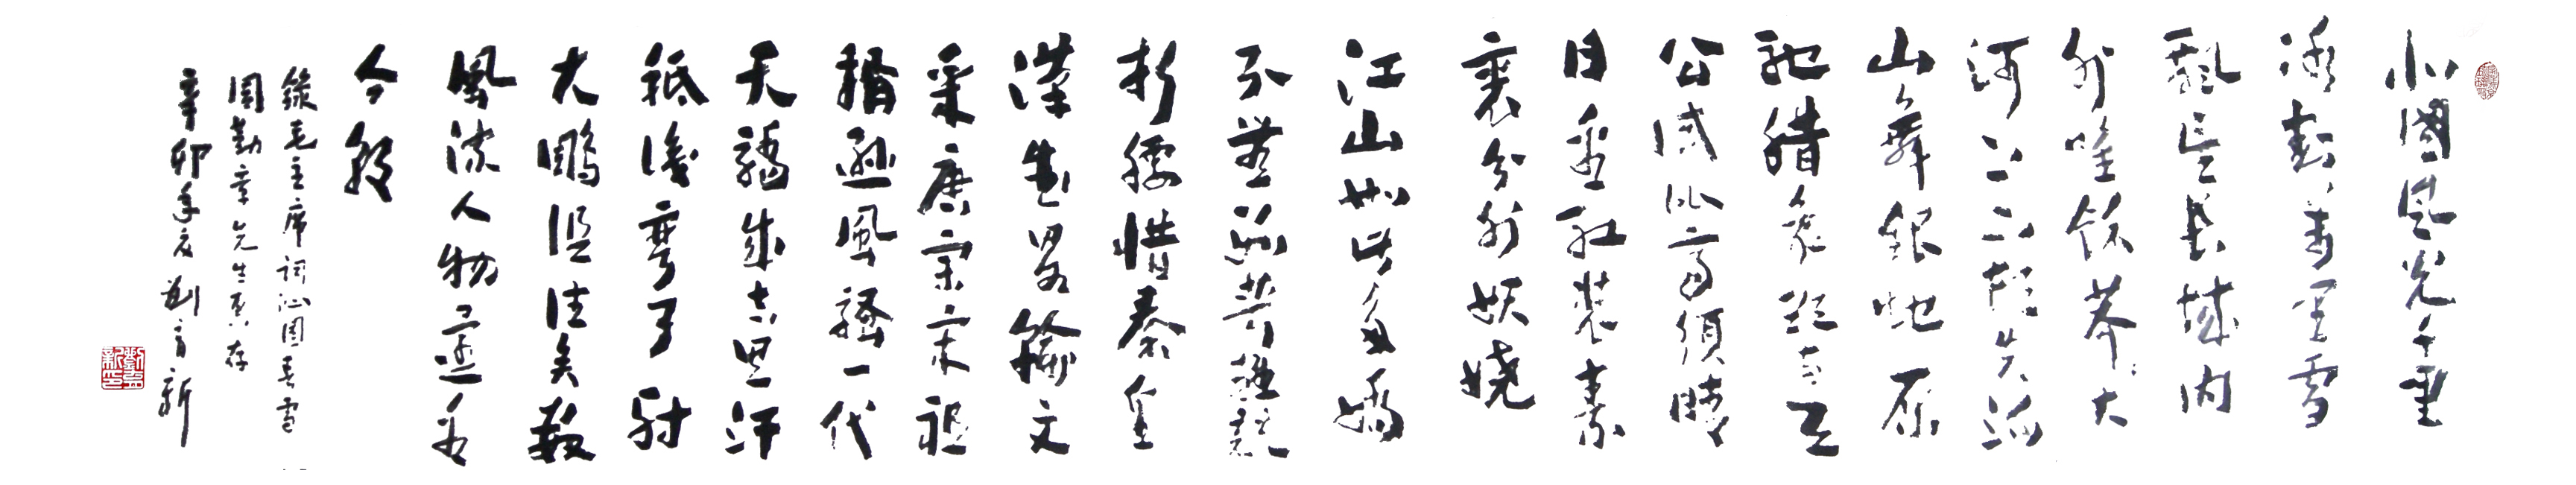 北國風光千里
冰封萬里雪
飄望長城內
外唯餘莽〻大
河上下頓失滔
山舞銀蛇原
馳臘象欲與天
公試比高須晴
日看紅裝素
裹分外妖嬈
江山如此多嬌
引無數英雄競
折腰惜秦皇
漢武略輸文
采唐宗宋祖
稍遜風騷一代
天驕成吉思汗
祗識彎弓射
大鵰俱往矣數
風流人物還看
今朝
錄毛主席詞沁園春雪
周勤章先生惠存
辛卯年夏劉育新